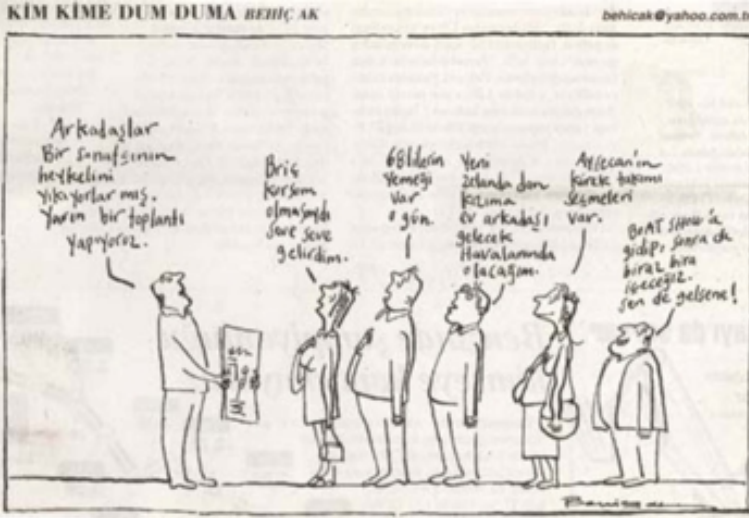 KİM KİME DUM DUMA BEHİÇ AK
behicak@yahoo.com.t
Arkadaşlar
Bir sanatçının
heykelini
yıkıyorlar mış.
Yarın bir toplantı
yapıyoruz.
Briç
kursum
olmasaydı
seve seve
gelirdim.
68'lilerin
Yemeği
var
o gün.
Yeni
Zelanda dan
kızıma
ev arkadaşı
gelecek
Havalanında
olacağım.
Ayşecan'ın
kürek takımı
seçmeleri
var.
BOAT SHOW'a
gidip, sonra da
biraz bira
içeceğiz.
sen de gelsene!